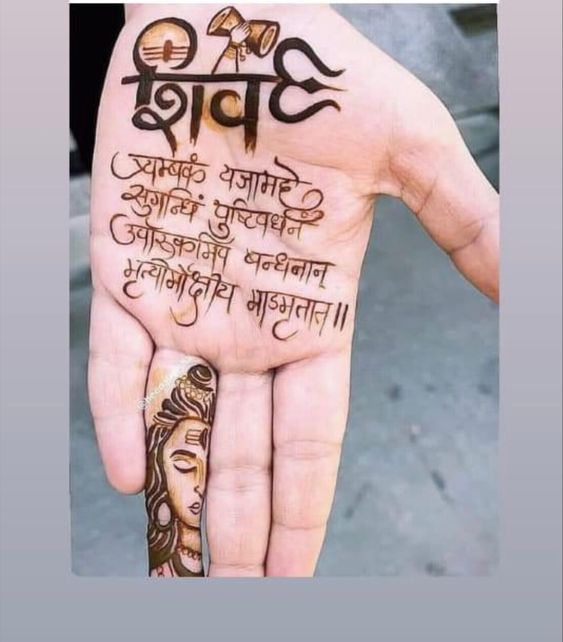 शिव
त्र्यम्बकं यजामहे
सुगन्धिं पुष्टिवर्धनं
उर्वारुकमिव बन्धनान्
मृत्योर्मुक्षीय माऽमृतात॥